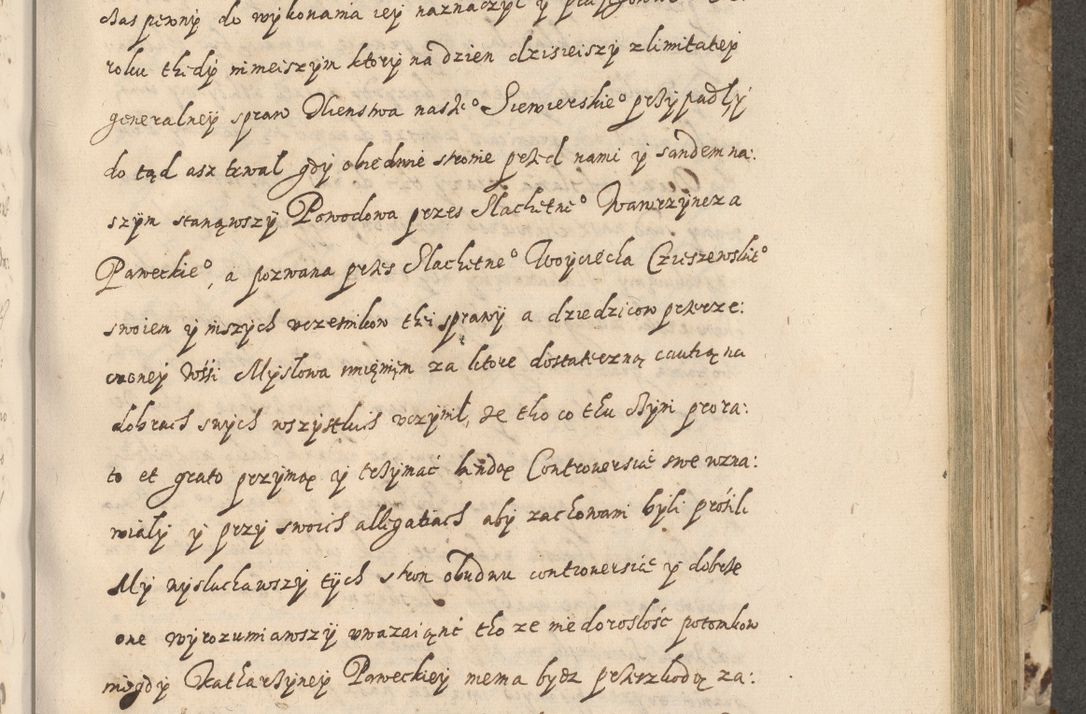 czas pewny do wykonania iey naznaczył y
roku thedÿ ninieiszÿm ktorÿ na dzien dzisieiszÿ z limitatieÿ
generalneÿ spraw Xienstwa nasze° Siewierskie° przÿpadłÿ
do tąd asz trwał gdÿ obiedwie stronie przed nami ÿ sandem na:
szÿm stanąwszÿ Powodowa przes Slachetne° Wawrzÿncza
Paweckie°, a pozwana przes Slachetne° Woÿciecha Czieszewskie°
swoiem ÿ inszÿch uczestnikow thei sprawÿ a dziedzicow przerze:
czoneÿ Wsi Mÿslowa imięniem za ktore dostateczną cautią na
dobrach swÿch wszÿstkich uczÿnił, że tho co thu czÿni pro ra:
to et grato przÿmą ÿ trzÿmać będą Controversie swe wzna:
wiałÿ ÿ przÿ swoich alligatiach abÿ zachowani bÿli prosili
Mÿ wÿsłuchawszÿ tÿch stron obudwu controversie ÿ dobrze
one wÿrozumiawszÿ uwazaiąnc tho ze niedorosłość potomkow
niegdÿ Katharzÿneÿ Paweckieÿ niema bÿdz przeszkodą za: